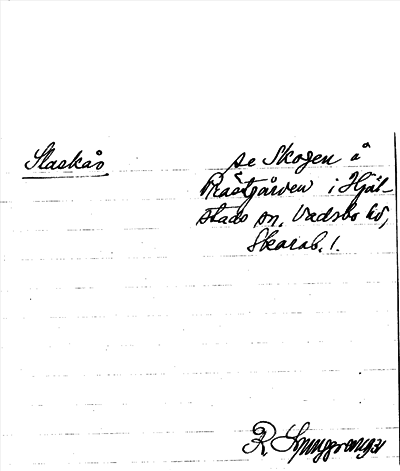 Slaskås
se Skogen å
Prästgården i Hjäl-
stads sn, Vadsbo hd,
Skarab. l.
R Ljunggren 1931